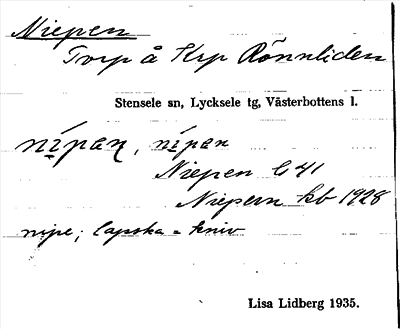 Niepen
Torp å Krp Rönnliden
Stensele sn, Lycksele tg, Västerbottens l.
nípan, nípan
Niepen G 41
Niepern kb 1928
nipe; lapska = kniv
Lisa Lidberg 1935.